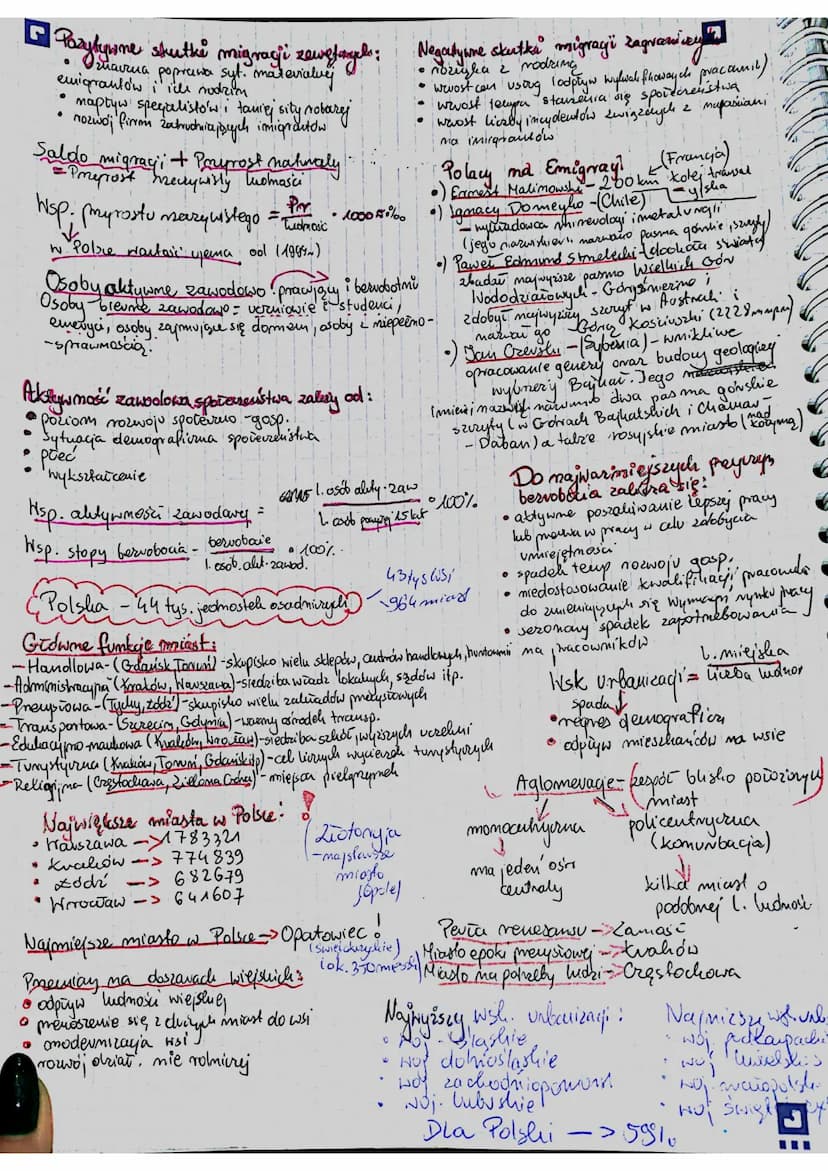 Pozytywne skutki migracji zewnętrznych:
• znaczna poprawa syt. materialnej
emigrantów i ich rodzin
• napływ specjalistów i taniej siły roboczej
• rozwój firm zatrudniających imigrantów
Saldo migracji + Przyrost naturalny
= Przyrost rzeczywisty ludności
Wsp. przyrostu rzeczywistego = Prz / ludność • 1000 ‰
w Polsce wartość ujemna od (199
Osoby aktywne zawodowo: pracujący i bezrobotni
Osoby bierne zawodowo = uczniowie i studenci,
emeryci, osoby zajmujące się domem, osoby z niepełno-
-sprawnością.
Aktywność zawodowa społeczeństwa zależy od:
• poziom rozwoju społeczno-gosp.
• sytuacja demograficzna społeczeństwa
• płeć
• wykształcenie
Wsp. aktywności zawodowej = l. osób akty. zaw / l. osób powyżej 15 lat • 100%
Wsp. stopy bezrobocia - bezrobocie / l. osób. akt. zawod. • 100%
Polska - 44 tys. jednostek osadniczych
43 tys wsi
964 miast
Główne funkcje miast:
- Handlowa - (Gdańsk, Toruń) - skupisko wielu sklepów, centrów handlowych, hurtowni
- Administracyjna (Kraków, Warszawa) - siedziba władz lokalnych, sądów itp.
- Przemysłowa - (Tychy, Łódź) - skupisko wielu zakładów przemysłowych
- Transportowa - (Szczecin, Gdynia) - ważny ośrodek transp.
- Edukacyjno-naukowa (Kraków, Wrocław) - siedziba szkół wyższych uczelni
- Turystyczna (Kraków, Toruń, Gdańsk itp) - cel licznych wycieczek turystycznych
- Religijna - (Częstochowa, Zielona Góra) - miejsca pielgrzymek
Największe miasta w Polsce: !
• Warszawa -> 1783321
• Kraków -> 774839
• Łódź -> 682679
• Wrocław -> 641607
Złotoryja
- najstarsze
miasto
Najmniejsze miasto w Polsce -> Opatowiec!
(świętokrzyskie)
Przemiany na obszarach wiejskich:
• odpływ ludności wiejskiej
• przenoszenie się z dużych miast do wsi
• modernizacja wsi
• rozwój dział. nie rolniczej
Negatywne skutki migracji zagranicznych
• rozłąka z rodziną
• wzrost cen usług (odpływ wykwalifikowanych pracownik)
• wzrost tempa starzenia się społeczeństwa
• wzrost liczby incydentów związanych z napaściami
na imigrantów
Polacy na Emigracji
•) Ernest Malinowski - 200 km kolej
(Francja)
•) Ignacy Domeyko - (Chile)
- wykładowca mineralogii i metalurgii
(jego nazwiskiem nazwano pasma górskie, szczyty)
•) Paweł Edmund Strzelecki - (dookoła świata)
zbadał najwyższe pasmo Wielkich Gór
Wododziałowych - Góry Śnieżne i
zdobył najwyższy szczyt w Australi i
nazwał go - Górą Kościuszki (2228 m npm)
•) Jan Czerski - (Syberia) - wnikliwe
opracowanie genezy oraz budowy geologicznej
wybrzeży Bajkał. Jego
Imieniem nazwano dwa pasma górskie
szczyty (w Górach Bajkalskich i Chamar-
- Daban) a także rosyjskie miasto (nad Kołymą)
Do najważniejszych przyczyn
bezrobocia zalicza się:
• aktywne poszukiwanie lepszej pracy
lub przerwa w pracy w celu zdobycia
umiejętności
• spadek temp rozwoju gosp.
• niedostosowanie kwalifikacji pracownika
do zmieniających się wymagań rynku pracy
• sezonowy spadek zapotrzebowania
na pracowników
Wsk urbanizacji = l. miejska / liczba ludnoś
spada
• regres demograficzn
• odpływ mieszkańców na wsie
Aglomeracje - (zespół blisko położonych
miast
monocentryczna
ma jeden ośr.
centraly
policentryczna
(konurbacja)
kilka miast o
podobnej l. ludności
Perła renesansu -> Zamość
Miasto epoki przemysłowej -> Kraków
Miasto na potrzeby ludzi -> Częstochowa
Najwyższy wsk. urbanizacji:
• woj - śląskie
• woj dolnośląskie
• woj zachodniopomorsk
• woj. lubuskie
Najniższy wsk. urb
• woj podkarpacki
• woj lubelski
• woj małopolsk
• woj święt
Dla Polski -> 59%